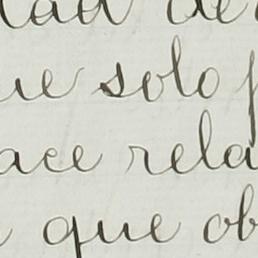 dad de
ue solo p
ace rela
que ob